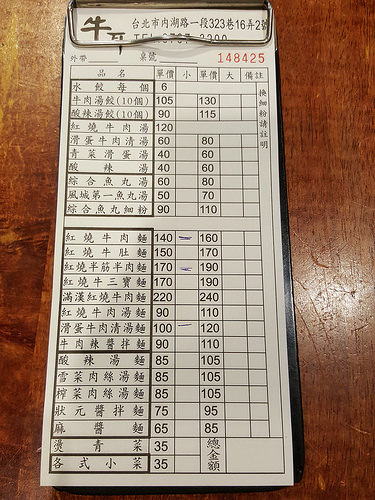 牛耳 台北市內湖路一段323巷16弄2號
外帶 桌號 148425
品名 單價 小 單價 大 備註
水餃每個 6
牛肉湯餃(10個) 105 130
酸辣湯餃(10個) 90 115
紅燒牛肉湯 120
滑蛋牛肉清湯 60 80
青菜滑蛋湯 40 60
酸辣湯 40 60
綜合魚丸湯 60 80
風城第一魚丸湯 50 70
綜合魚丸細粉 90 110
換細粉請註明
紅燒牛肉麵 140 160
紅燒牛肚麵 150 170
紅燒半筋半肉麵 170 190
紅燒牛三寶麵 170 190
滿漢紅燒牛肉麵 220 240
紅燒牛肉湯麵 90 110
滑蛋牛肉清湯麵 100 120
牛肉辣醬拌麵 90 110
酸辣湯麵 85 105
雪菜肉絲湯麵 85 105
榨菜肉絲湯麵 85 105
狀元醬拌麵 75 95
麻醬麵 65 85
燙青菜 35 總金額
各式小菜 35